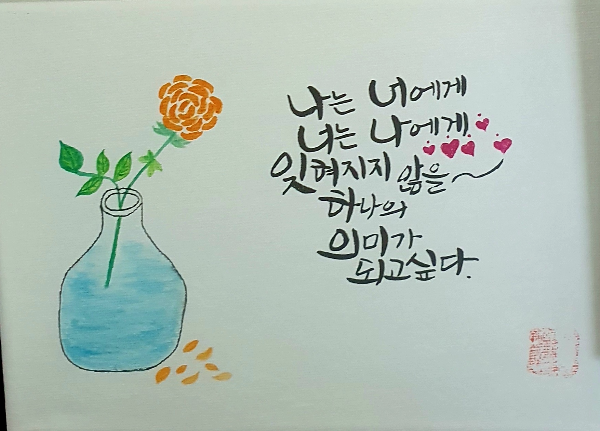 나는 너에게
너는 나에게
잊혀지지 않을
하나의
의미가
되고싶다.